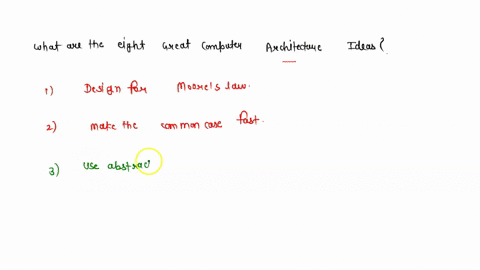 What are the eight Great Computer Architecture Ideas?
1) Design for Moore's law.
2) make the common case fast.
3) use abstrac